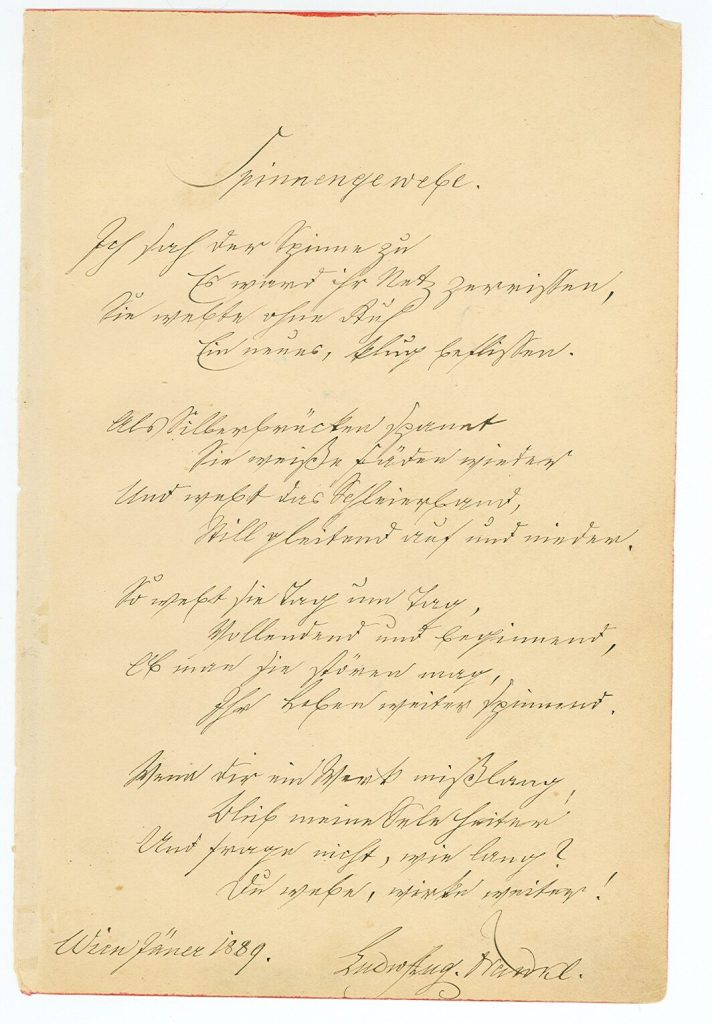 Spinnengewebe.
Ich sah der Spinne zu
Es ward ihr Netz zerrissen,
Sie webte ohne Ruh
Ein neues, klug beflissen.
Als Silberbrücken spannt
Sie weiße Fäden wieder
Und webt das Schleierband,
Still gleitend auf und nieder.
So webt sie Tag um Tag,
Vollendend und beginnend,
Ob man sie stören mag,
Ihr Leben weiter spinnend.
Wenn dir ein Werk mißlang,
Bleib meine Sele heiter!
Und frage nicht, wie lang?
Du webe, wirke weiter!
Wien Jäner 1889.
Ludw. Aug. Frankl.